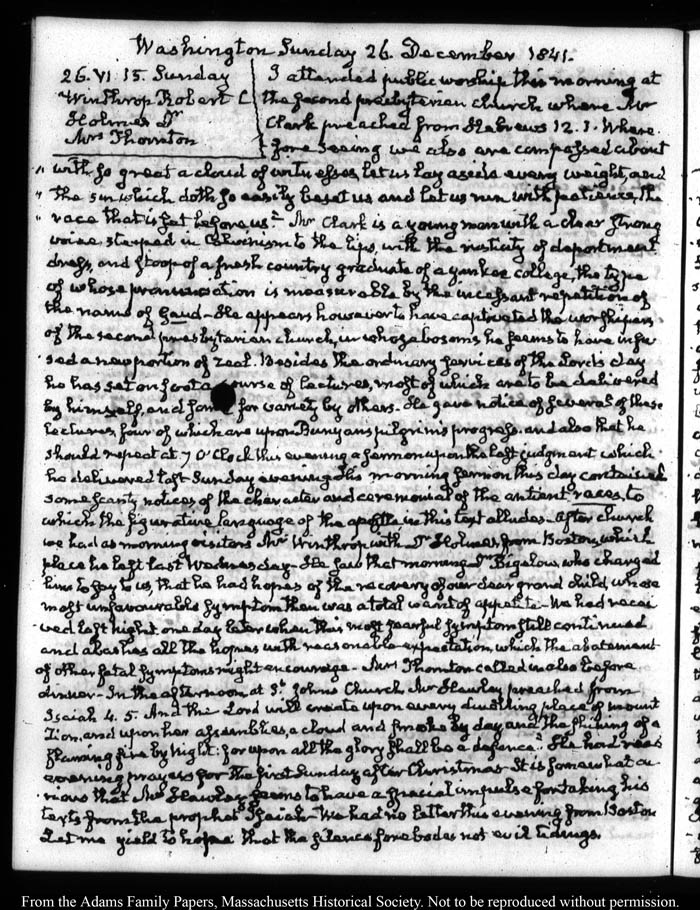 Washington Sunday 26. December 1841.
26. VI. 15. Sunday
Winthrop Robert C
Holmes Dr
Mrs Thornton
I attended public worship this morning at
the second presbyterian church where Mr
Clark preached from Hebrews 12. 1. Where-
fore seeing we also are compassed about
" with so great a cloud of witnesses, let us lay aside every weight, and
" the sin which doth so easily beset us and let us run with patience, the
" race that is set before us." Mr Clark is a young man with a clear strong
voice, steeped in Calvinism to the lips, with the rusticity of deportment
dress, and stoop of a fresh country graduate of a yankee college, the type
of whose pronunciation is measurable by the incessant repetition of
the name of Gaud—He appears however to have captivated the worshippers
of the second presbyterian church, in whose bosoms he seems to have infu-
sed a new portion of zeal. Besides the ordinary services of the Lord's day
he has set on foot a course of lectures, most of which are to be delivered
by himself, and some for variety by others. He gave notice of several of these
lectures, four of which are upon Bunyan's pilgrim's progress, and also that he
should repeat at 7 O'Clock this evening a sermon upon the last judgment which
he delivered last Sunday evening. His morning sermon this day contained
some scanty notices, of the character and ceremonial of the antient races, to
which the figurative language of the apostle in this text alludes—After church
we had as morning visitors Mr Winthrop with Dr Holmes, from Boston, which
place he left last Wednesday—He saw that morning Dr Bigelow, who charged
him to say to us, that he had hopes of the recovery of our dear grand child, whose
most unfavourable symptom then was a total want of appetite—We had recei-
ved last night, one day later when this most fearful symptom still continued
and abashes all the hopes with reasonable expectation, which the abatement
of other fatal symptoms might encourage—Mrs Thornton called in also before
dinner—In the afternoon, at St. John's Church Mr Hawley preached from
Isaiah 4. 5. And the Lord will create upon every dwelling place of mount
Zion, and upon her assemblies, a cloud and smoke by day, and the shining of a
flaming fire by Night: for upon all the glory shall be a defence." He had read
evening prayers for the first Sunday after Christmas—It is somewhat cu-
rious that Mr Hawley seems to have a special impulse for taking his
texts from the prophet Isaiah—We had no letter this evening from Boston
Let me yield to hope that the silence forebodes not evil tidings.
From the Adams Family Papers, Massachusetts Historical Society. Not to be reproduced without permission.